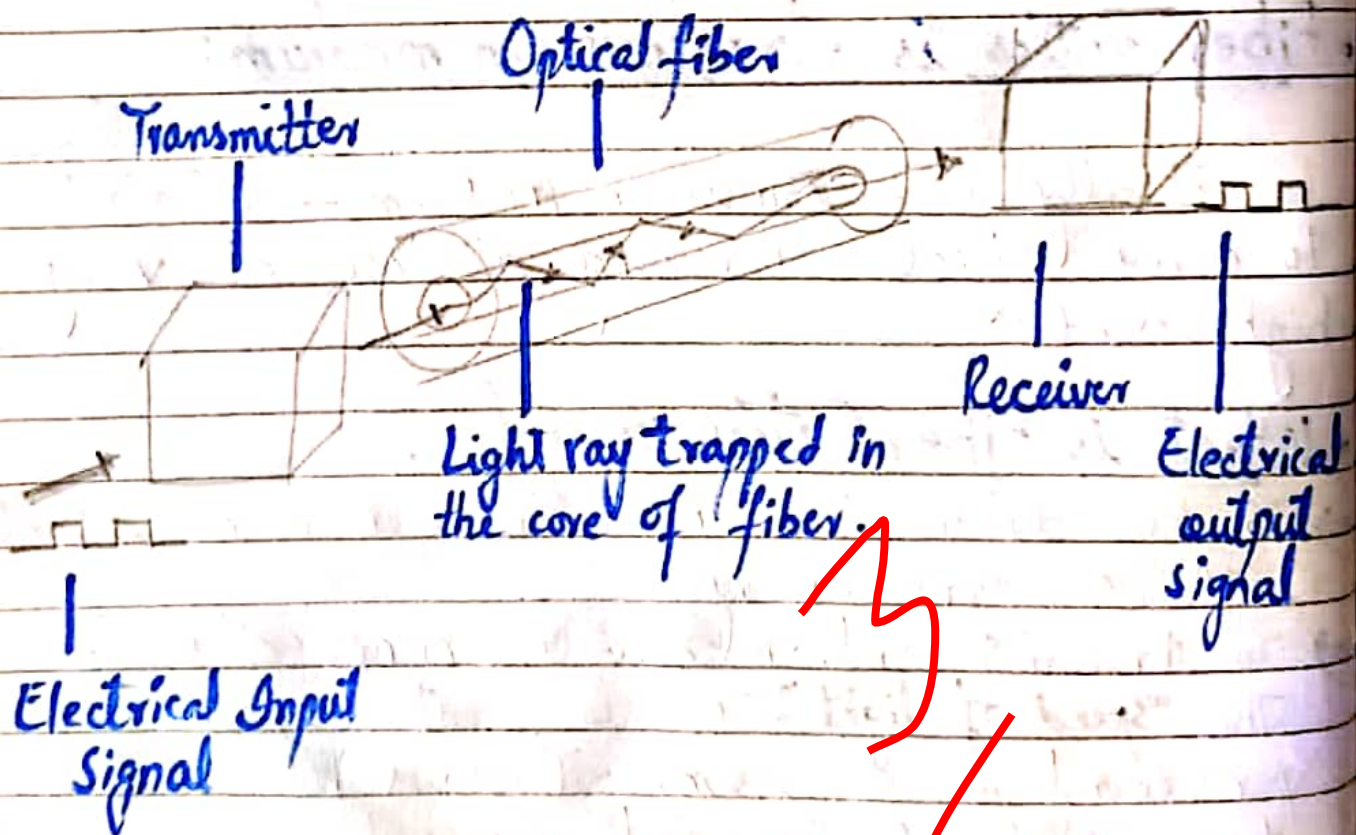 Optical fiber
Transmitter
Receiver
Light ray trapped in
the core of fiber.
Electrical
output
signal
Electrical Input
Signal
3